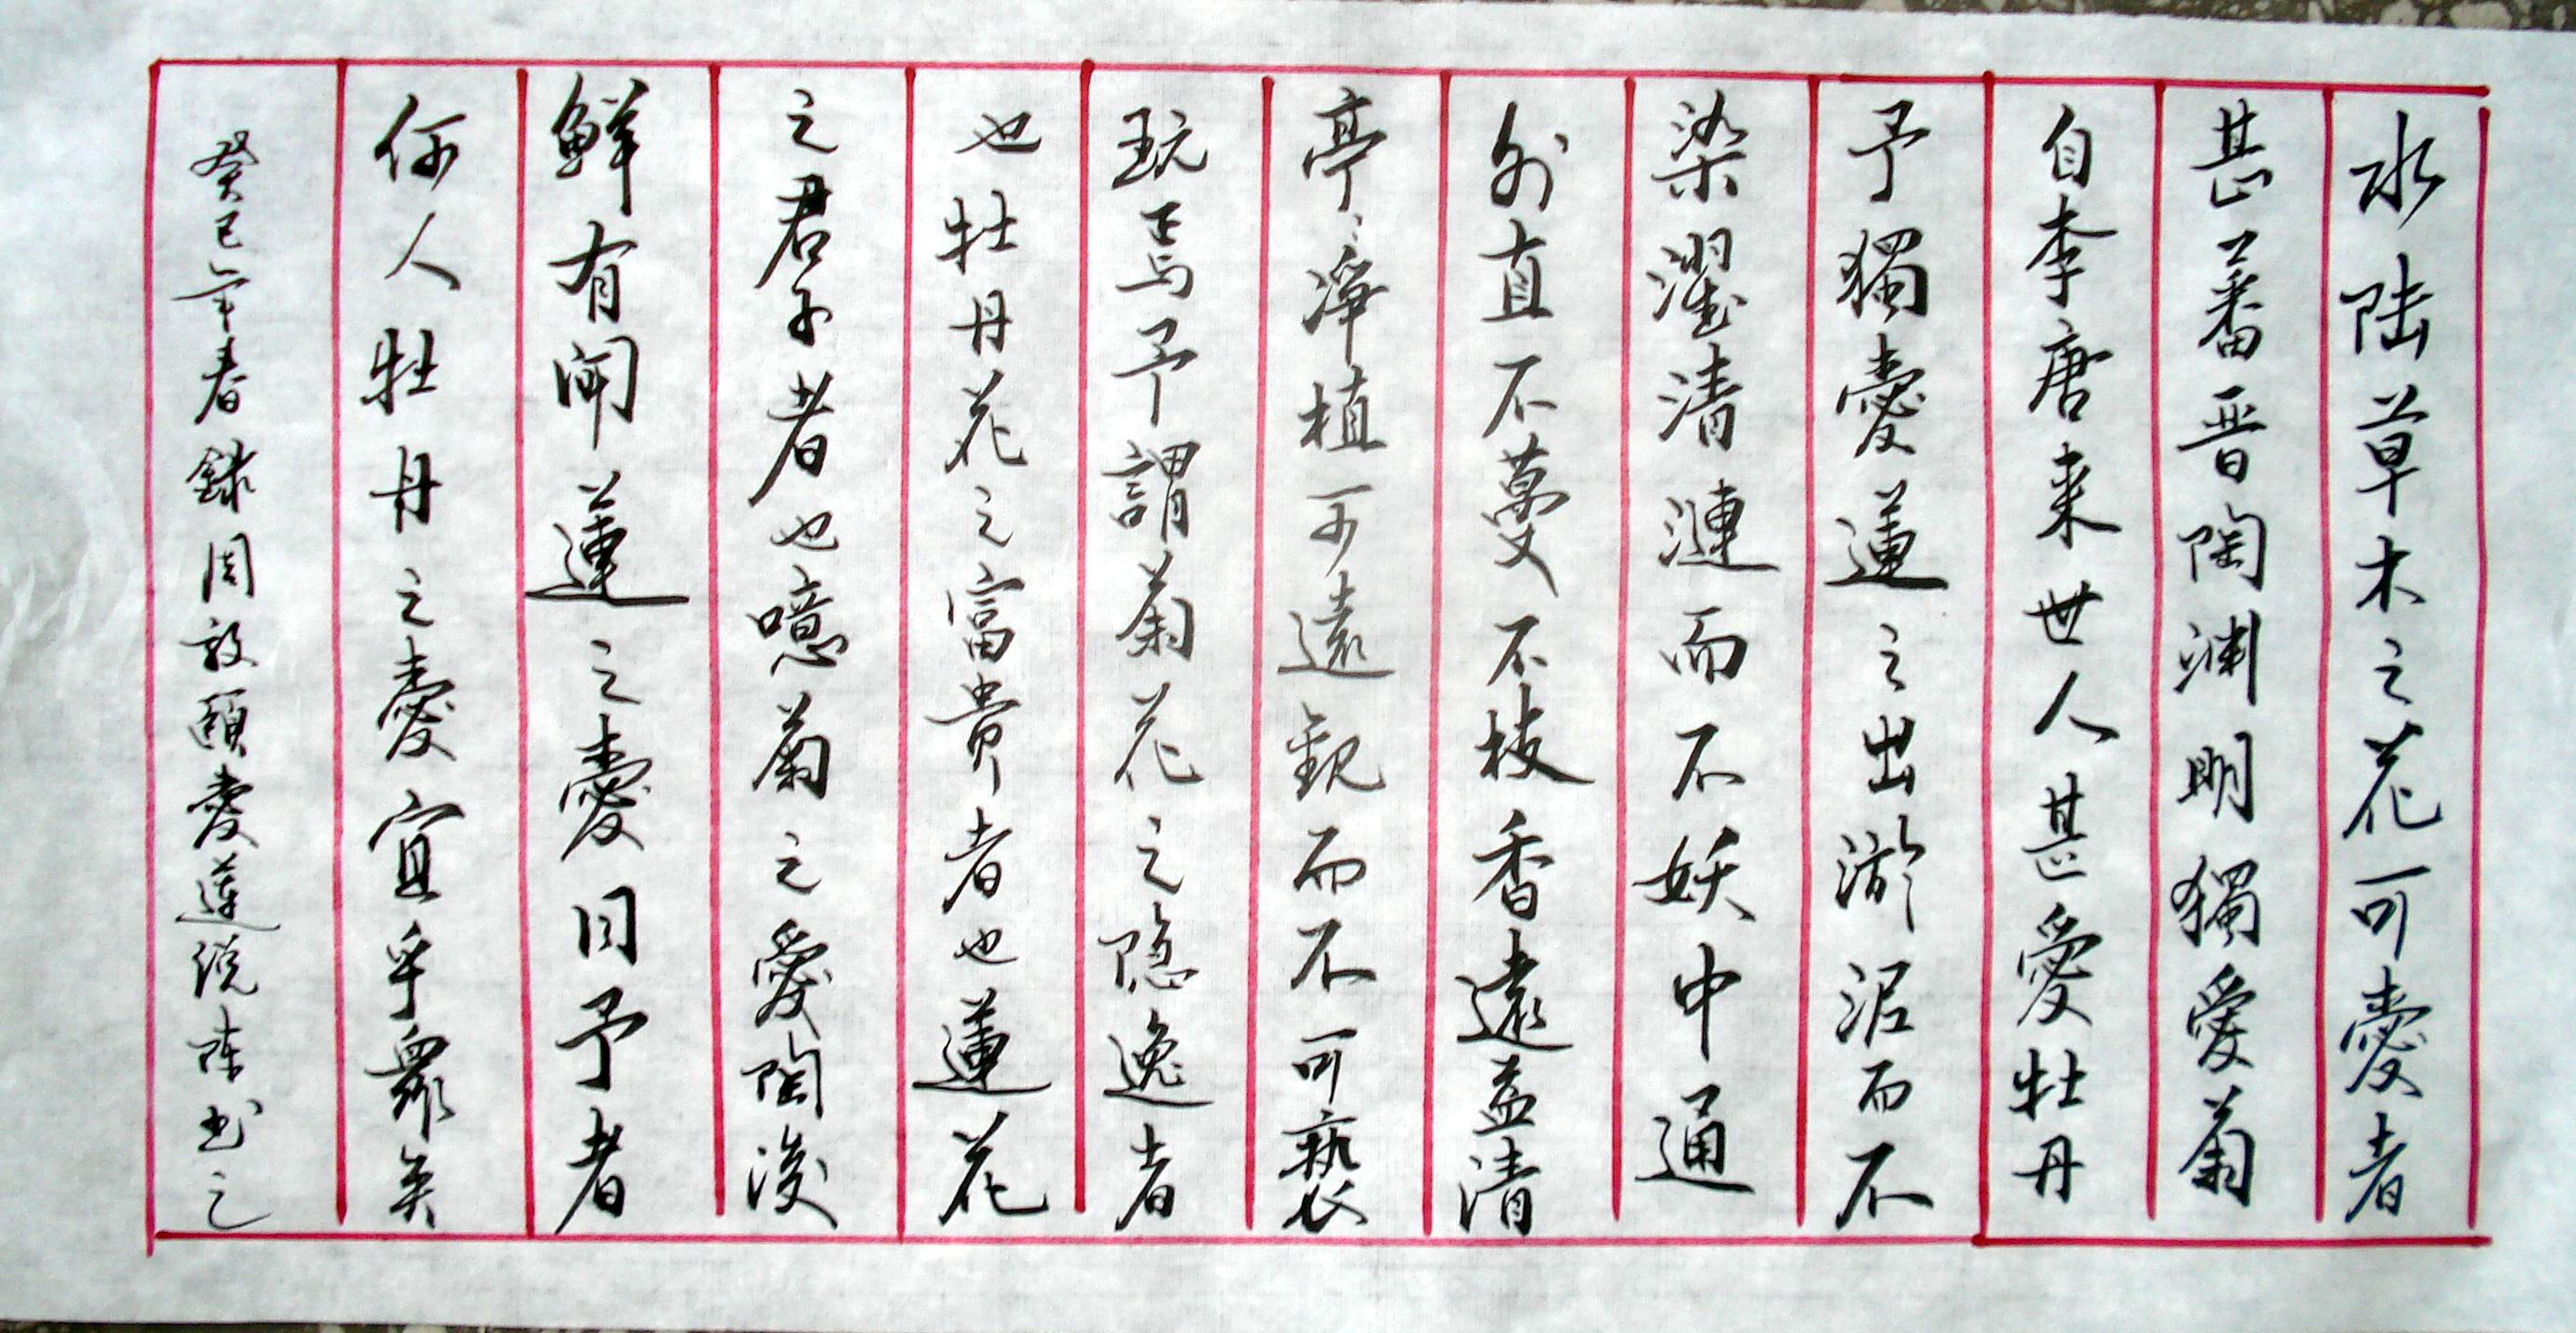 水陆草木之花可愛者
甚蕃晋陶渊明獨愛菊
自李唐来世人甚愛牡丹
予獨愛蓮之出淤泥而不
染濯清漣而不妖中通
外直不蔓不枝香遠益清
亭〻淨植可遠觀而不可褻
玩焉予謂菊花之隐逸者
也牡丹花之富貴者也蓮花
之君子者也噫菊之愛陶後
鮮有聞蓮之愛同予者
何人牡丹之愛宜乎眾矣
癸巳年春録周敦頤愛蓮説陈书之